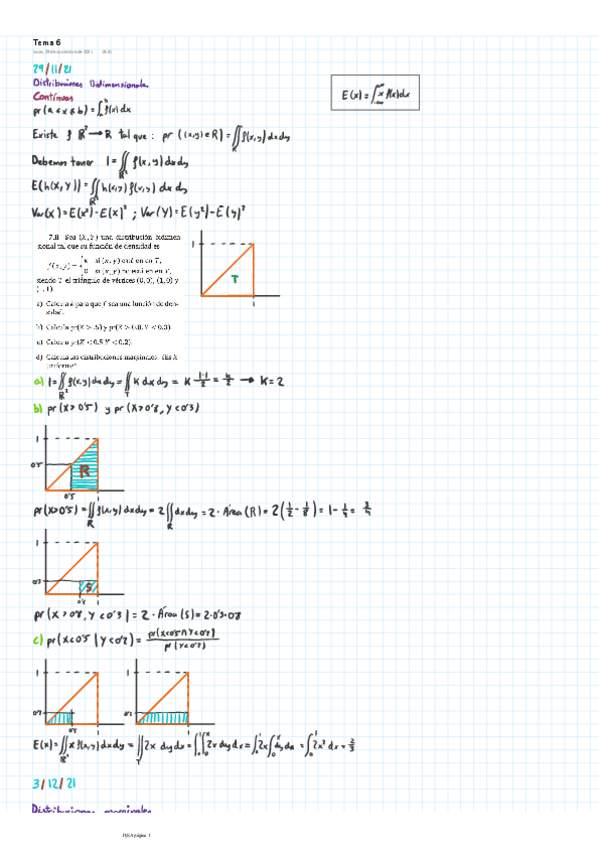 Tema 6
29/11/21
Distribuciones Bidimensionales
Continuas
pr(a≤x≤b) = ∫ f(x)dx
E(x) = ∫ x f(x)dx
Existe f R² → R tal que : pr ((x,y)∈R) = ∬ f(x,y) dxdy
R
Debemos tener 1 = ∬ f(x,y) dxdy
R²
E(h(x,y)) = ∬ h(x,y) f(x,y) dxdy
R²
Var(X) = E(x²) - E(x)² ; Var(Y) = E(y²) - E(y)²
7.8 Sea (X,Y) una distribución bidimen-
sional tal que su función de densidad es
f(x,y) = k si (x,y) está en T,
0 si (x,y) no está en T,
siendo T el triángulo de vértices (0,0), (1,0) y
(1,1).
a) Calcula k para que f sea una función de den-
sidad.
b) Calcula pr(X > .5) y pr(X > 0.8, Y < 0.3)
c) Calcula pr(X < 0.5 Y < 0.2)
d) Calcula las distribuciones marginales.
1
T
1
a) 1 = ∬ f(x,y) dxdy = ∬ K dxdy = K 1·1/2 = K/2 → K = 2
R² T
b) pr(X > 0'5) y pr(X > 0'8, Y < 0'3)
1
0'5
R
0'5 1
pr(X>0'5) = ∬ f(x,y) dxdy = 2 ∬ dxdy = 2 · Área (R) = 2(1/2 - 1/8) = 1 - 1/4 = 3/4
R R
1
0'3
S
0'8 1
pr(X > 0'8, Y < 0'3) = 2 · Área (S) = 2·0'3·0'8
c) pr(X<0'5 | Y<0'2) = pr(X<0'5 ∩ Y<0'2) / pr(Y<0'2)
1
0'2
0'5
1
0'2
1
E(x) = ∬ x f(x,y) dxdy = ∬ 2x dydx = ∫∫ 2x dydx = ∫ 2x ∫ dy dx = ∫ 2x² dx = 2/3
R² T
3/12/21
Distribuciones marginales